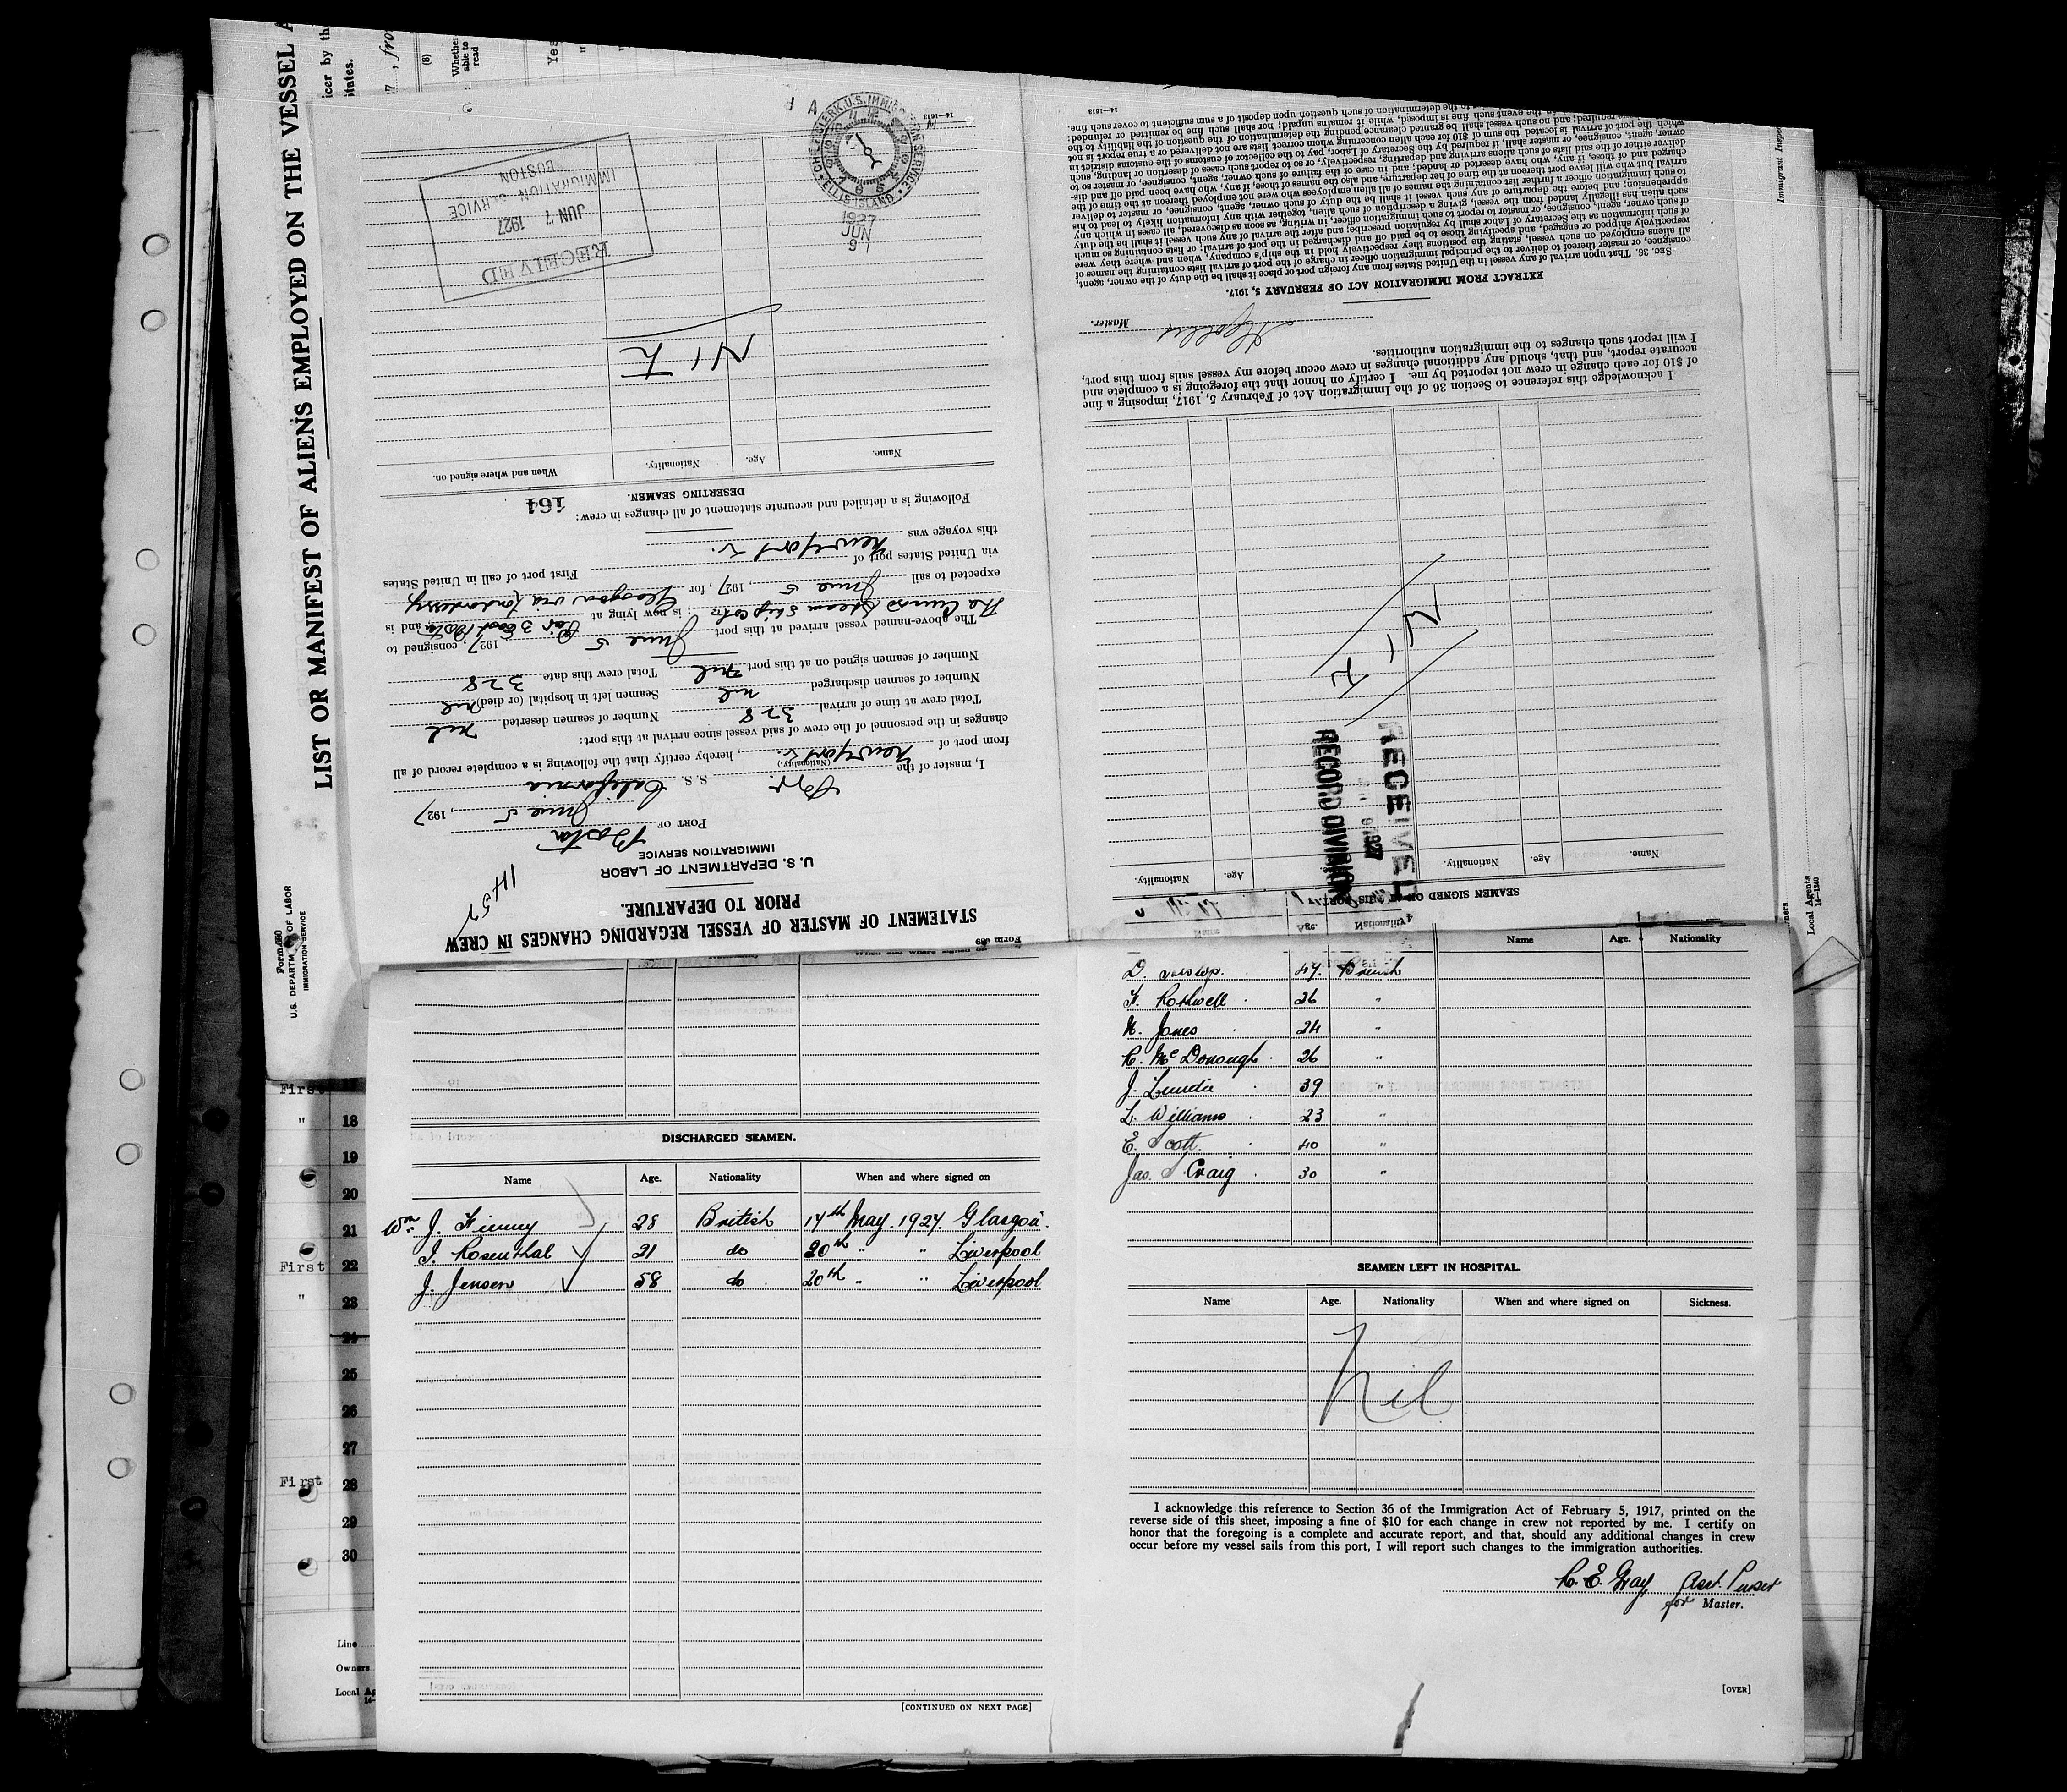 LIST OR MANIFEST OF ALIENS EMPLOYED ON THE VESSEL A
icer by th
tates.
(8)
Whether
able to
read
Yes
U.S. DEPARTMENT OF LABOR
IMMIGRATION SERVICE
Form 689
STATEMENT OF MASTER OF VESSEL REGARDING CHANGES IN CREW
PRIOR TO DEPARTURE.
U. S. DEPARTMENT OF LABOR
IMMIGRATION SERVICE
PORT OF Boston
June 5, 1927
I, master of the S. S. California
(Nationality)
from port of New York, hereby certify that the following is a complete record of all
changes in the personnel of the crew of said vessel since arrival at this port:
Total crew at time of arrival 328 Number of seamen deserted nil
Number of seamen discharged nil Seamen left in hospital (or died) nil
Number of seamen signed on at this port nil Total crew this date 328
The above-named vessel arrived at this port June 5 1927, consigned to
The Cunard Steam Ship Co; is now lying at Pier 3 East Boston and is
expected to sail June 5, 1927, for Glasgow via Londonderry
via United States port of First port of call in United States
this voyage was New York
Following is a detailed and accurate statement of all changes in crew:
164
DESERTING SEAMEN.
Name. Age. Nationality. When and where signed on.
NIL
RECEIVED
JUN 7 1927
IMMIGRATION SERVICE
BOSTON
CHIEF CLERK, U.S. IMMIGRATION SERVICE
ELLIS ISLAND
1927
JUN
9
SEAMEN SIGNED ON AT THIS PORT
Name. Age. Nationality. Age. Nationality.
NIL
RECEIVED
1927
RECORD DIVISION
I acknowledge this reference to Section 36 of the Immigration Act of February 5, 1917, imposing a fine
of $10 for each change in crew not reported by me. I certify on honor that the foregoing is a complete and
accurate report, and that, should any additional changes in crew occur before my vessel sails from this port,
I will report such changes to the immigration authorities.
Master.
EXTRACT FROM IMMIGRATION ACT OF FEBRUARY 5, 1917.
SEC. 36. That upon arrival of any vessel in the United States from any foreign port or place it shall be the duty of the owner, agent,
consignee, or master thereof to deliver to the principal immigration officer in charge of the port of arrival lists containing the names of
all aliens employed on such vessel, stating the positions they respectively hold in the ship's company, when and where they were
respectively shipped or engaged, and specifying those to be paid off and discharged in the port of arrival; or lists containing so much
of such information as the Secretary of Labor shall by regulation prescribe; and after the arrival of any such vessel it shall be the duty
of such owner, agent, consignee, or master to report to such immigration officer, in writing, as soon as discovered, all cases in which any
such alien has illegally landed from the vessel, giving a description of such alien, together with any information likely to lead to his
apprehension; and before the departure of any such vessel it shall be the duty of such owner, agent, consignee, or master to deliver
to such immigration officer a further list containing the names of all alien employees who were not employed thereon at the time of the
arrival but who will leave port thereon at the time of her departure, and also the names of those, if any, who have been paid off and dis-
charged and of those, if any, who have deserted or landed; and in case of the failure of such owner, agent, consignee, or master so to
deliver either of the said lists of such aliens arriving and departing, respectively, or so to report such cases of desertion or landing, such
owner, agent, consignee, or master shall, if required by the Secretary of Labor, pay to the collector of customs of the customs district in
which the port of arrival is located the sum of $10 for each alien concerning whom correct lists are not delivered or a true report is not
made as above required; and no vessel shall be granted clearance pending the determination of the question of the liability to the
14—1613
Immigrant Inspe
Local Agents
14—1240
First 17
" 18
19
20
21
First 22
" 23
24
25
26
27
First 28
29
30
Line
Owners
Local Ag
DISCHARGED SEAMEN.
Name Age. Nationality When and where signed on
Wm J. Finney 28 British 14th May. 1927. Glasgow.
I. Rosenthal 21 do 20th " " Liverpool
J. Jensen 58 do 20th " " Liverpool
[CONTINUED ON NEXT PAGE]
Name Age. Nationality
D. 47. British
F. Rothwell 26 "
N. Jones 24 "
R. McDonough 26 "
J. 39 "
L. Williams 23 "
E. Scott. 40 "
Jas. S. Craig 30 "
SEAMEN LEFT IN HOSPITAL.
Name Age. Nationality When and where signed on Sickness.
Nil
I acknowledge this reference to Section 36 of the Immigration Act of February 5, 1917, printed on the
reverse side of this sheet, imposing a fine of $10 for each change in crew not reported by me. I certify on
honor that the foregoing is a complete and accurate report, and that, should any additional changes in crew
occur before my vessel sails from this port, I will report such changes to the immigration authorities.
E. Gray Asst. Purser
for Master.
[OVER]